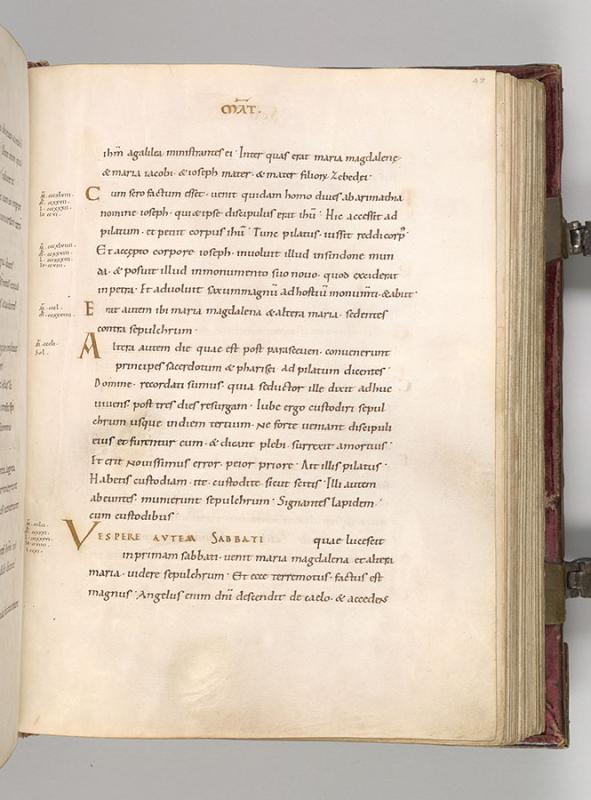 42
MAT.
ihm agalilea ministrantes ei · Inter quas erat maria magdalene ·
& maria iacobi · & ioseph mater · & mater filiorum Zebedei ·
Cum sero factum esset · venit quidam homo dives ab arimathia
nomine ioseph · qui & ipse discipulus erat ihu · Hic accessit ad
pilatum · et petiit corpus ihu · Tunc pilatus · iussit reddi corp;
Et accepto corpore ioseph · involuit illud insindone mun
da · & posuit illud inmonumento suo novo · quod exciderat
in petra · Et advoluit saxum magnu ad hostiu monumti · & abiit ·
Erat autem ibi maria magdalena & altera maria · sedentes
contra sepulchrum ·
Altera autem die quae est post parasceven · convenerunt
principes sacerdotum & pharisei ad pilatum dicentes ·
Domine · recordati sumus · quia seductor ille dixit adhuc
vivens · post tres dies resurgam · Iube ergo custodiri sepul
chrum usque indiem tertium · Ne forte veniant discipuli
eius et furentur eum · & dicant plebi · surrexit amortuis ·
Et erit novissimus error · peior priore · Ait illis pilatus ·
Habetis custodiam · ite · custodite sicut scitis · Illi autem
abeuntes · munierunt sepulchrum · Signantes lapidem ·
cum custodibus ·
VESPERE AUTEM SABBATI quae lucescit
inprimam sabbati · venit maria magdalena et altera
maria · videre sepulchrum · Et ecce terremotus · factus est
magnus · Angelus enim dni descendit de caelo · & accedens